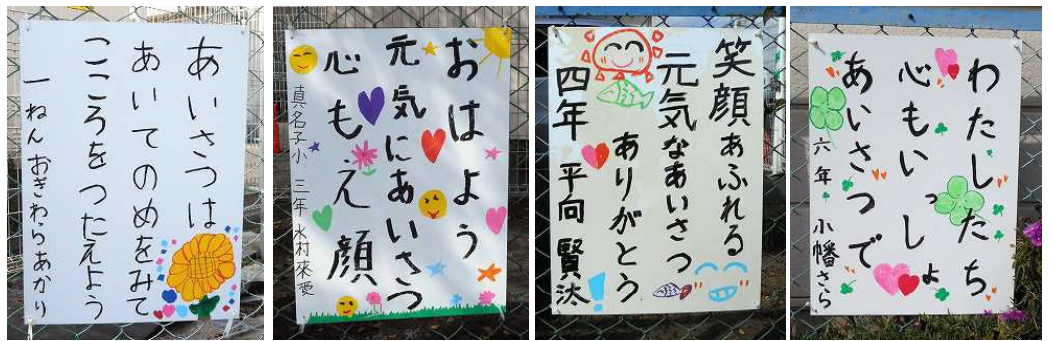 あいさつは
あいてのめをみて
こころをつたえよう
一ねん おぎわらあかり
おはよう
元気にあいさつ
心もえ顔
真名子小 三年 水村來愛
笑顔あふれる
元気なあいさつ
ありがとう!
四年 平向 賢汰
わたしたち
心もいっしょ
あいさつで
六年 小幡さら